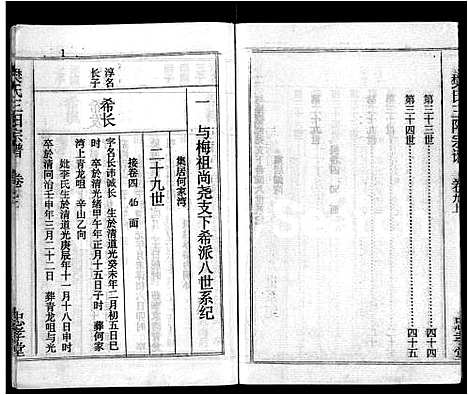 樊氏三阳宗谱 卷九上
第三十三世 四十四
第三十四世 四十五
忠孝堂
一 与梅祖尚尧支下希派八世系纪
集居何家湾
二十九世
接卷四 46 面
淳名长子
希长
字名长讳诚长 生於清道光癸未年二月初五日巳
时 卒於清光绪甲午年正月十五日子时 葬何家
湾上青龙咀 辛山乙向
妣李氏生於清道光庚辰年十一月十八日申时
卒於清同治壬申年三月二十二日 葬青龙咀与光
樊氏三阳宗谱
忠孝堂
1